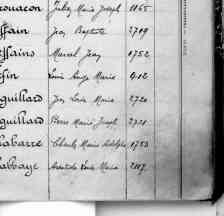 rouacon Jules Marie Joseph 1165
ffain Jean Baptiste 2719
ssains Marcel Jean 1752
fin Louis Ange Marie 412
guillard Jean Louis Marie 2720
guillard Pierre Marie Joseph 2721
labarre Charles Marie Adolphe 1753
abbaye Louis Marie 2117